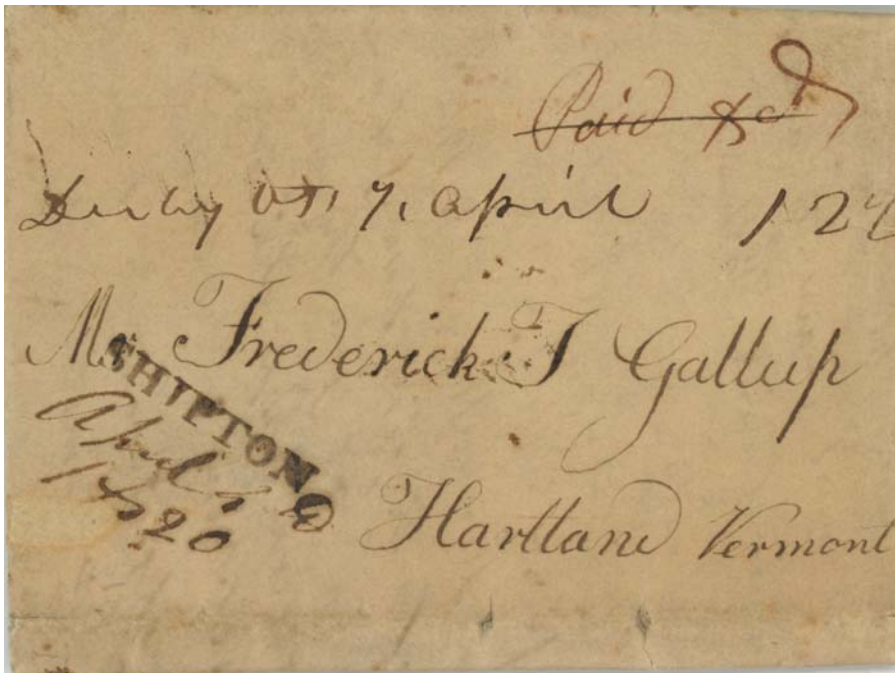 Paid
Derby Vt, 7, april 12½
Mr Frederick T Gallup
SHIPTON
April
1820
Hartland Vermont